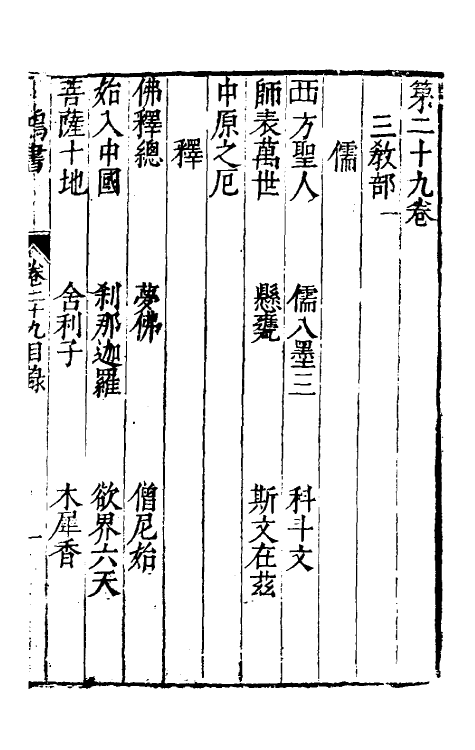 第二十九卷
三敎部一
儒
西方聖人 儒八墨三 科斗文
師表萬世 懸甕 斯文在茲
中原之厄
釋
佛釋總 夢佛 僧尼始
始入中國 刹那迦羅 欲界六天
菩薩十地 舍利子 木犀香
鴻書 卷二十九目錄 一